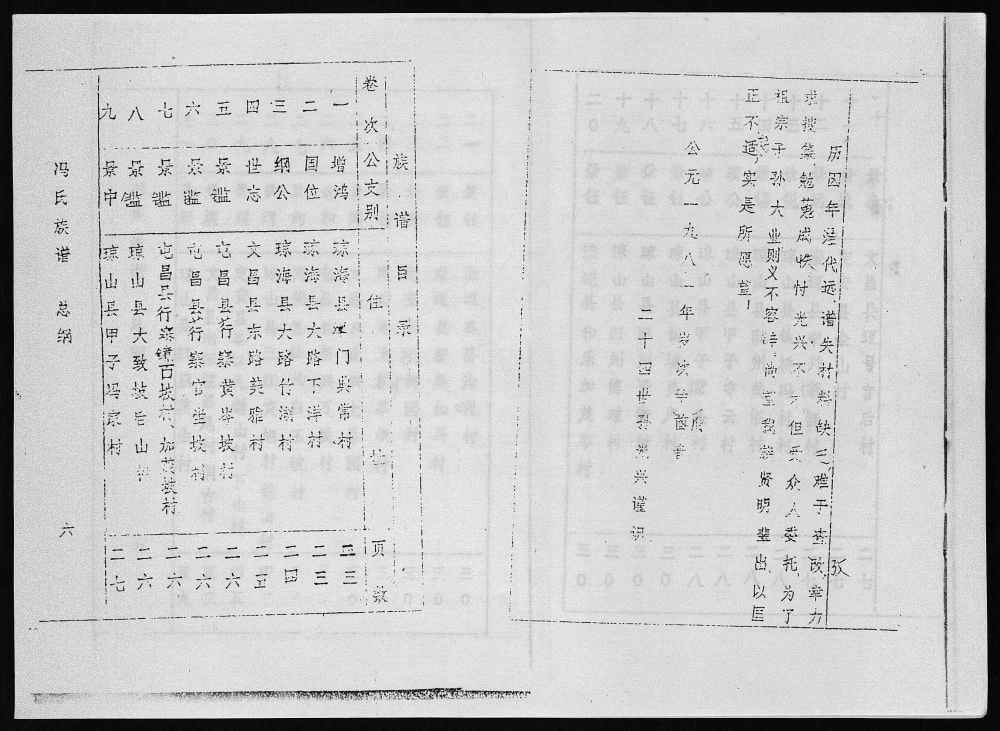 历因年湮代远谱失村料缺,难于查改幸力
求搜集勉蒐成帙付光兴不才但受众人委托为了
祖宗子孙大业则义不容辞尚望我族贤明辈出以匡
正不适,实是所愿望!
公元一九八一年岁次辛酉
二十四世孙兴谨识
族谱目录
卷次 公支别 住址 页数
一 增鸿 琼海县门典常村 二三
二 国位 琼海县大路下洋村 二三
三 纲公 琼海县大路竹湖村 二四
四 世志 文昌县东路美雅村 二五
五 景鑑 屯昌县行寨黄岑坡村 二六
六 景鑑 屯昌县行寨官坐坡村 二六
七 景鑑 屯昌县行寨镇百坡村、加坡村 二六
八 景鑑 琼山县大致坡后山村 二六
九 景中 琼山县甲子冯家村 二七
冯氏族谱 总纲 六